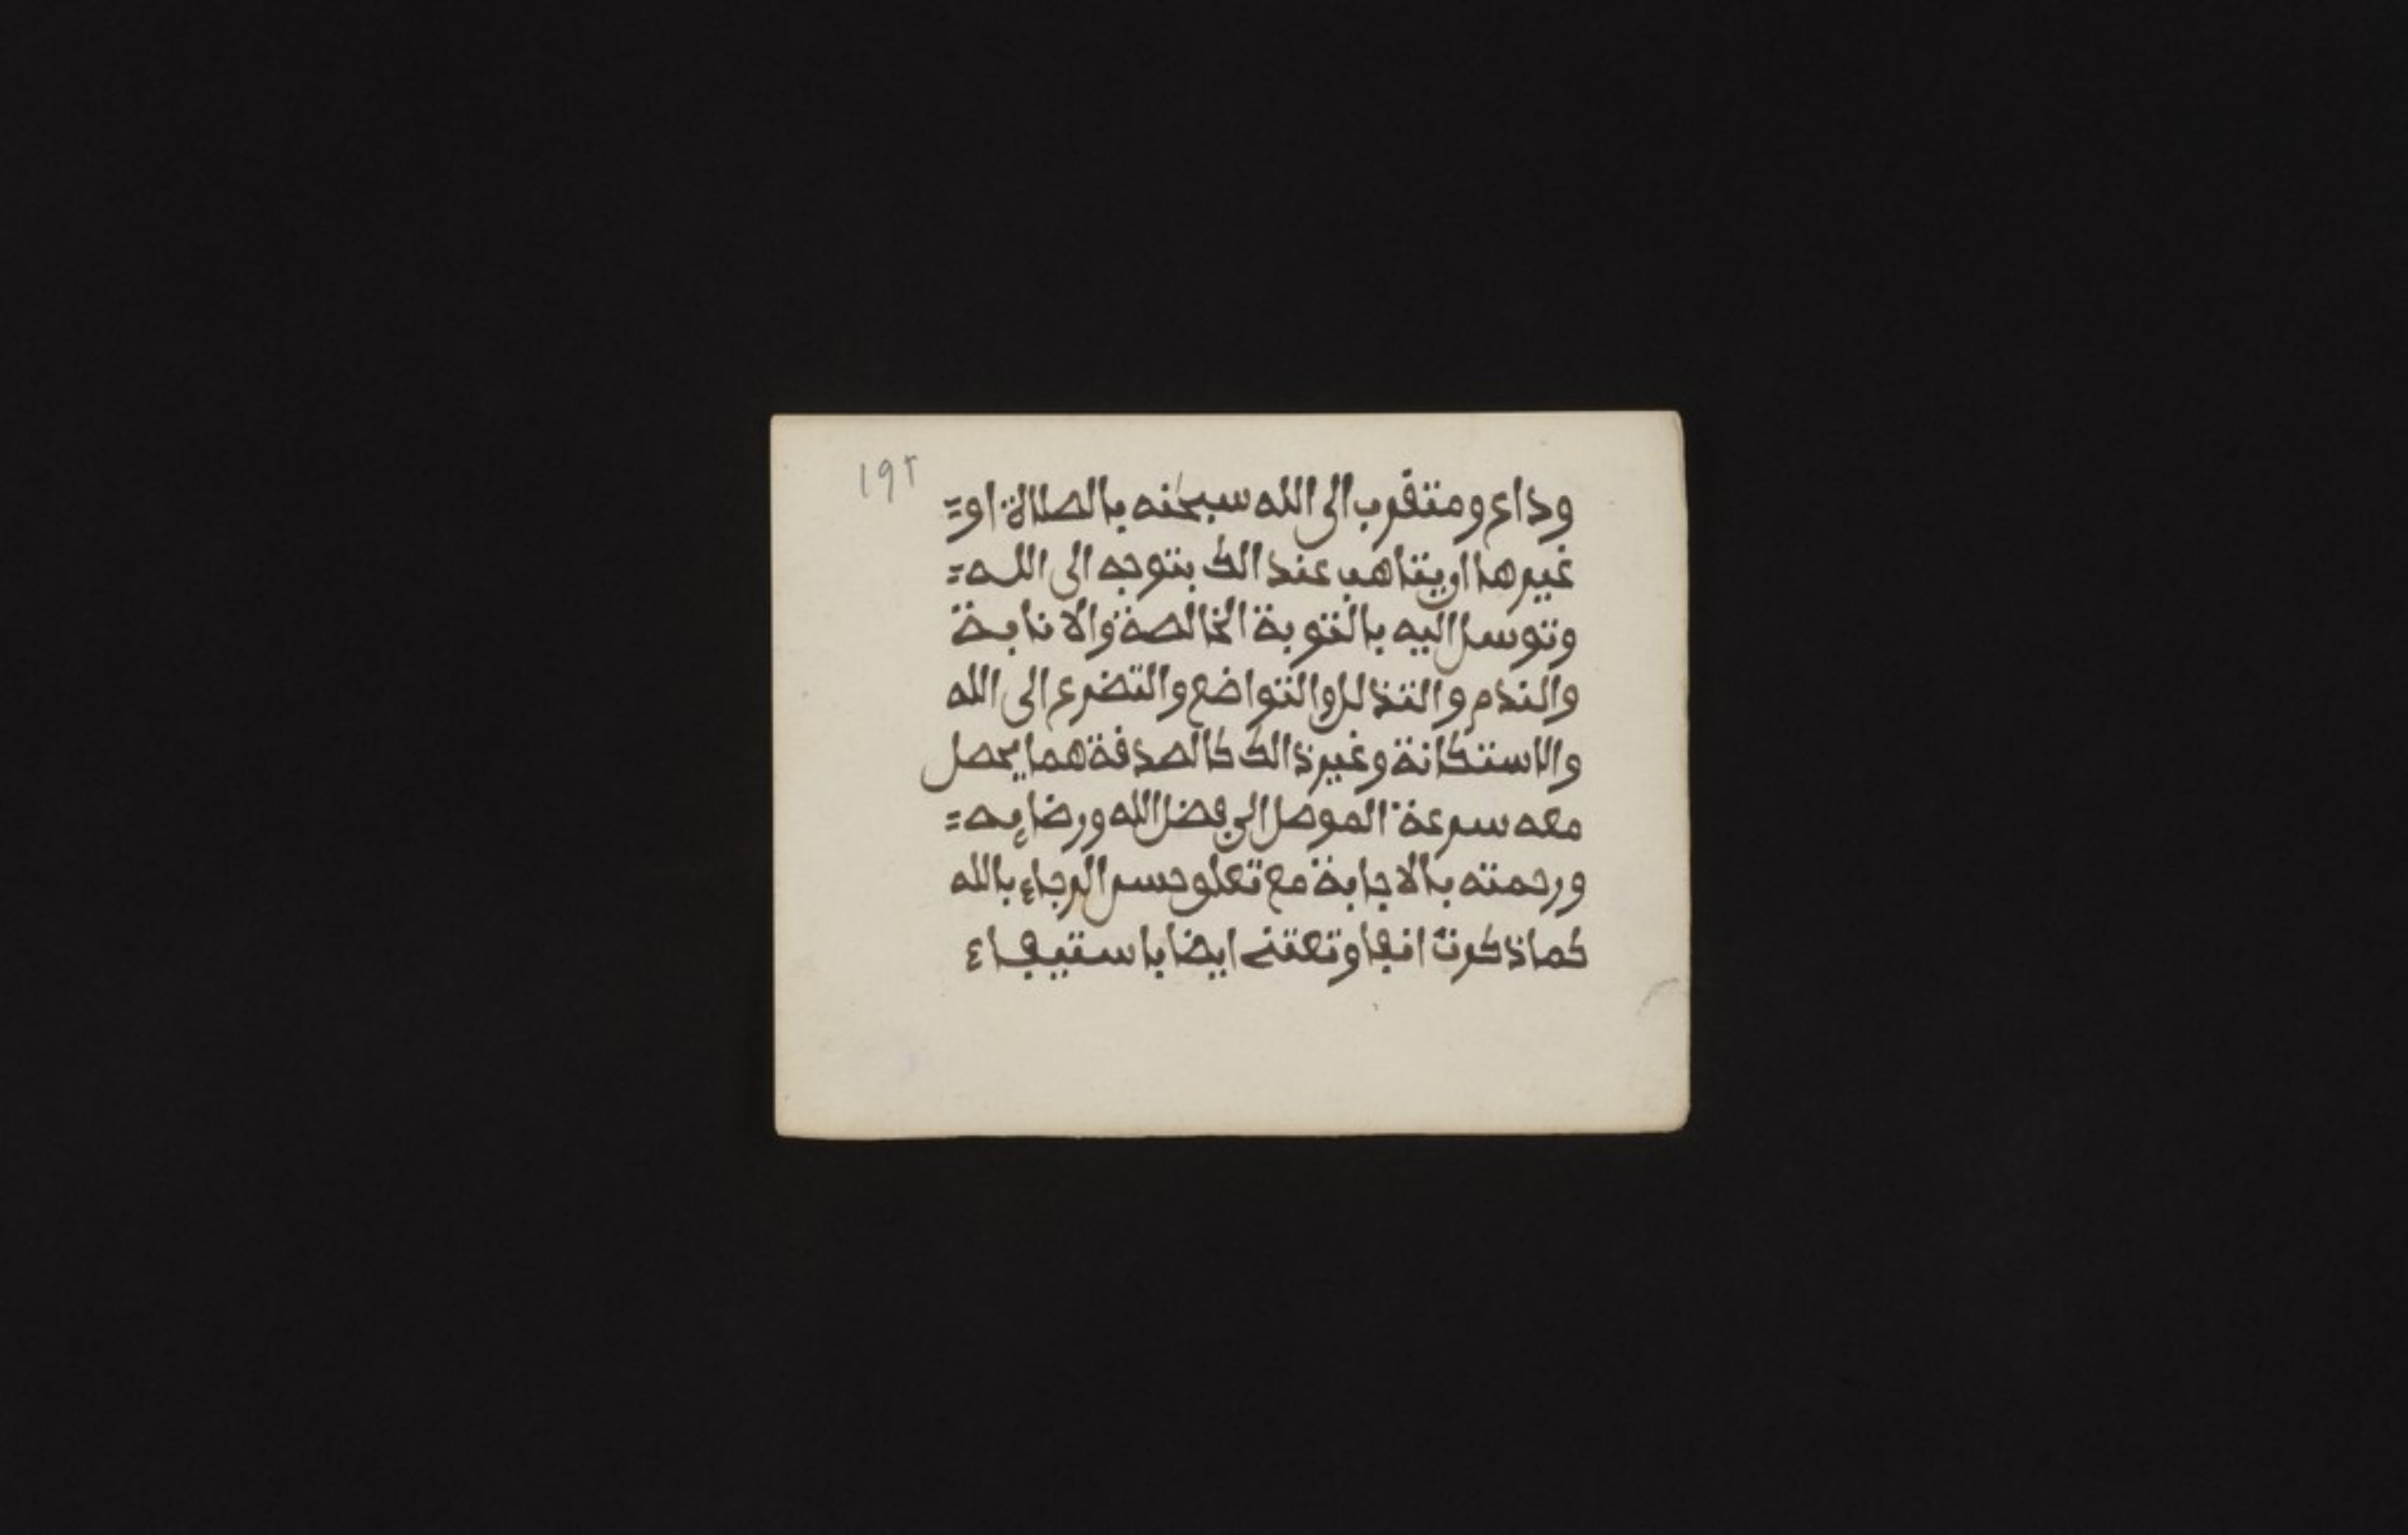 ١٩٢
وداع ومتقرب الى الله سبحنه بالصلاة او=
غيرها او يتاهب عند الك بتوجه الى اللـه=
وتوسل اليه بالتوبة الخالصة والانابـة
والندم والتذلل والتواضع والتضرع الى الله
والاستكانة وغير ذالك كالصدقة مما يحصل
معه سرعة الموصل الى فضل الله ورضايـه=
ورحمته بالاجابة مع تعلو حسن الرجاء بالله
كما ذكرت انفا وتعتنى ايضا باستيـفـاء